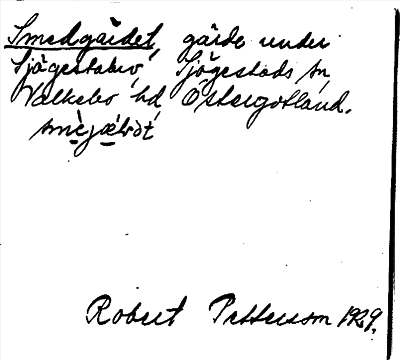 Smedgärdet, gärde under
Sjögestabro, Sjögestads sn,
Valkebo hd Östergötland.
Robert Petterson 1929.